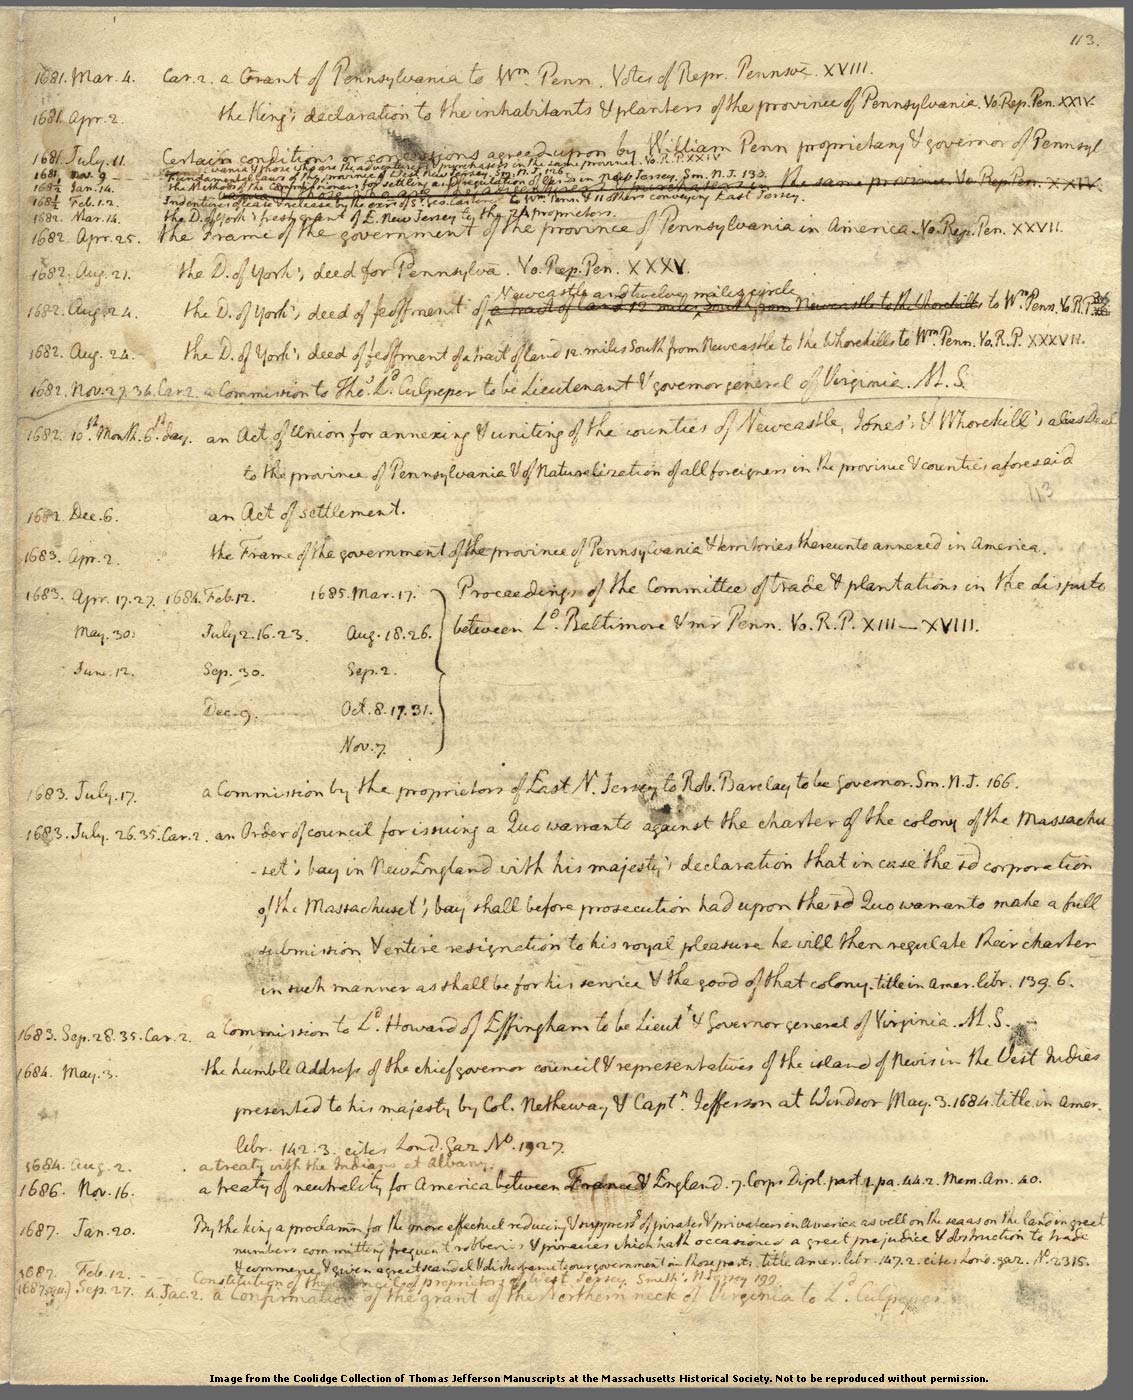 113.
1681. Mar. 4. Car. 2. a Grant of Pennsylvania to Wm Penn. Votes of Repr. Pennsva. XVIII.
1681. Apr. 2. the King's declaration to the inhabitants & planters of the province of Pennsylvania. Vo. Rep. Pen. XXIV.
1681. July. 11. Certain conditions or concessions agreed upon by William Penn proprietary & governor of Pennsyl
vania & those who are the adventurers & purchasers in the same province. Vo. R. P. XXIV
1681. Nov. 9. Fundamental laws of the province of West New Jersey. Sm. N. J. 126.
168½ Jan. 14. the Methods of the Commissioners for settling and regulation of lands in New Jersey. Sm. N. J. 130.
in the same province. Vo. Rep. Pen. XXIV.
168½ Feb. 1. 2. Indentures of lease & release by the exrs of Sr. Geo. Carteret to Wm. Penn & 11 others conveying East Jersey.
1682. Mar. 14. the D. of York's fresh grant of E. New Jersey to the 24 proprietors.
1682. Apr. 25. the Frame of the government of the province of Pennsylvania in America. Vo. Rep. Pen. XXVII.
1682. Aug. 21. the D. of York's deed for Pennsylva. Vo. Rep. Pen. XXXV.
Newcastle and twelve miles circle
1682. Aug. 24. the D. of York's deed of feoffment of a tract of land 12 miles South from Newcastle to the Whorekills to Wm Penn. Vo. R. P.
1682. Aug. 24. the D. of York's deed of feoffment of a tract of land 12. miles South from Newcastle to the Whorekills to Wm Penn. Vo. R. P. XXXVII.
1682. Nov. 27. 34. Car. 2. a Commission to Tho. Ld. Culpeper to be Lieutenant & governor general of Virginia. M. S.
1682. 10th. Month. 6th. day. an Act of Union for annexing & uniting of the counties of Newcastle, Jones's & Whorekill's alias Deal
to the province of Pennsylvania & of Naturalization of all foreigners in the province & counties aforesaid
113
1682. Dec. 6. an Act of settlement.
1683. Apr. 2. the Frame of the government of the province of Pennsylvania & territories thereunto annexed in America.
1683. Apr. 17. 27. 1684. Feb. 12. 1685. Mar. 17. Proceedings of the Committee of trade & plantations in the dispute
May. 30. July 2. 16. 23. Aug. 18. 26. between Ld. Baltimore & mr Penn. Vo. R. P. XIII—XVIII.
June. 12. Sep. 30. Sep. 2.
Dec. 9. Oct. 8. 17. 31.
Nov. 7.
1683. July. 17. a Commission by the proprietors of East N. Jersey to Rob. Barclay to be governor. Sm. N. J. 166.
1683. July. 26. 35. Car. 2. an Order of council for issuing a Quo warranto against the charter of the colony of the Massachu
-set's bay in New England with his majesty's declaration that in case the sd corporation
of the Massachuset's bay shall before prosecution had upon the sd Quo warranto make a full
submission & entire resignation to his royal pleasure he will then regulate their charter
in such manner as shall be for his service & the good of that colony. title in Amer. libr. 139. 6.
1683. Sep. 28. 35. Car. 2. a Commission to Ld. Howard of Effingham to be Lieut. & Governor general of Virginia. M. S.
1684. May. 3. the humble Address of the chief governor council & representatives of the island of Nevis in the West Indies
presented to his majesty by Col. Netheway & Captn. Jefferson at Windsor May. 3. 1684. title in Amer.
libr. 142. 3. cites Lond. gaz. No. 1927.
1684. Aug. 2. a treaty with the Indians at Albany.
1686. Nov. 16. a treaty of neutrality for America between France & England. 7. Corps Dipl. part. 2. pa. 44. 2. Mem. Am. 40.
1687. Jan. 20. By the king a proclamn for the more effectual reducing & suppressg of pirates & privateers in America as well on the sea as on the land in great
numbers committing frequent robberies & piracies which hath occasioned a great prejudice & obstruction to trade
& commerce & given a great scandal & disturbance to our government in those parts. title Amer. libr. 147. 2. cites Lond. gaz. No. 2315.
1687. Feb. 12. Constitution of the council of proprietors of West Jersey. Smith's N. Jersey 199.
Sep. 27. 4. Jac. 2. a Confirmation of the grant of the Northern neck of Virginia to Ld. Culpeper.
Image from the Coolidge Collection of Thomas Jefferson Manuscripts at the Massachusetts Historical Society. Not to be reproduced without permission.